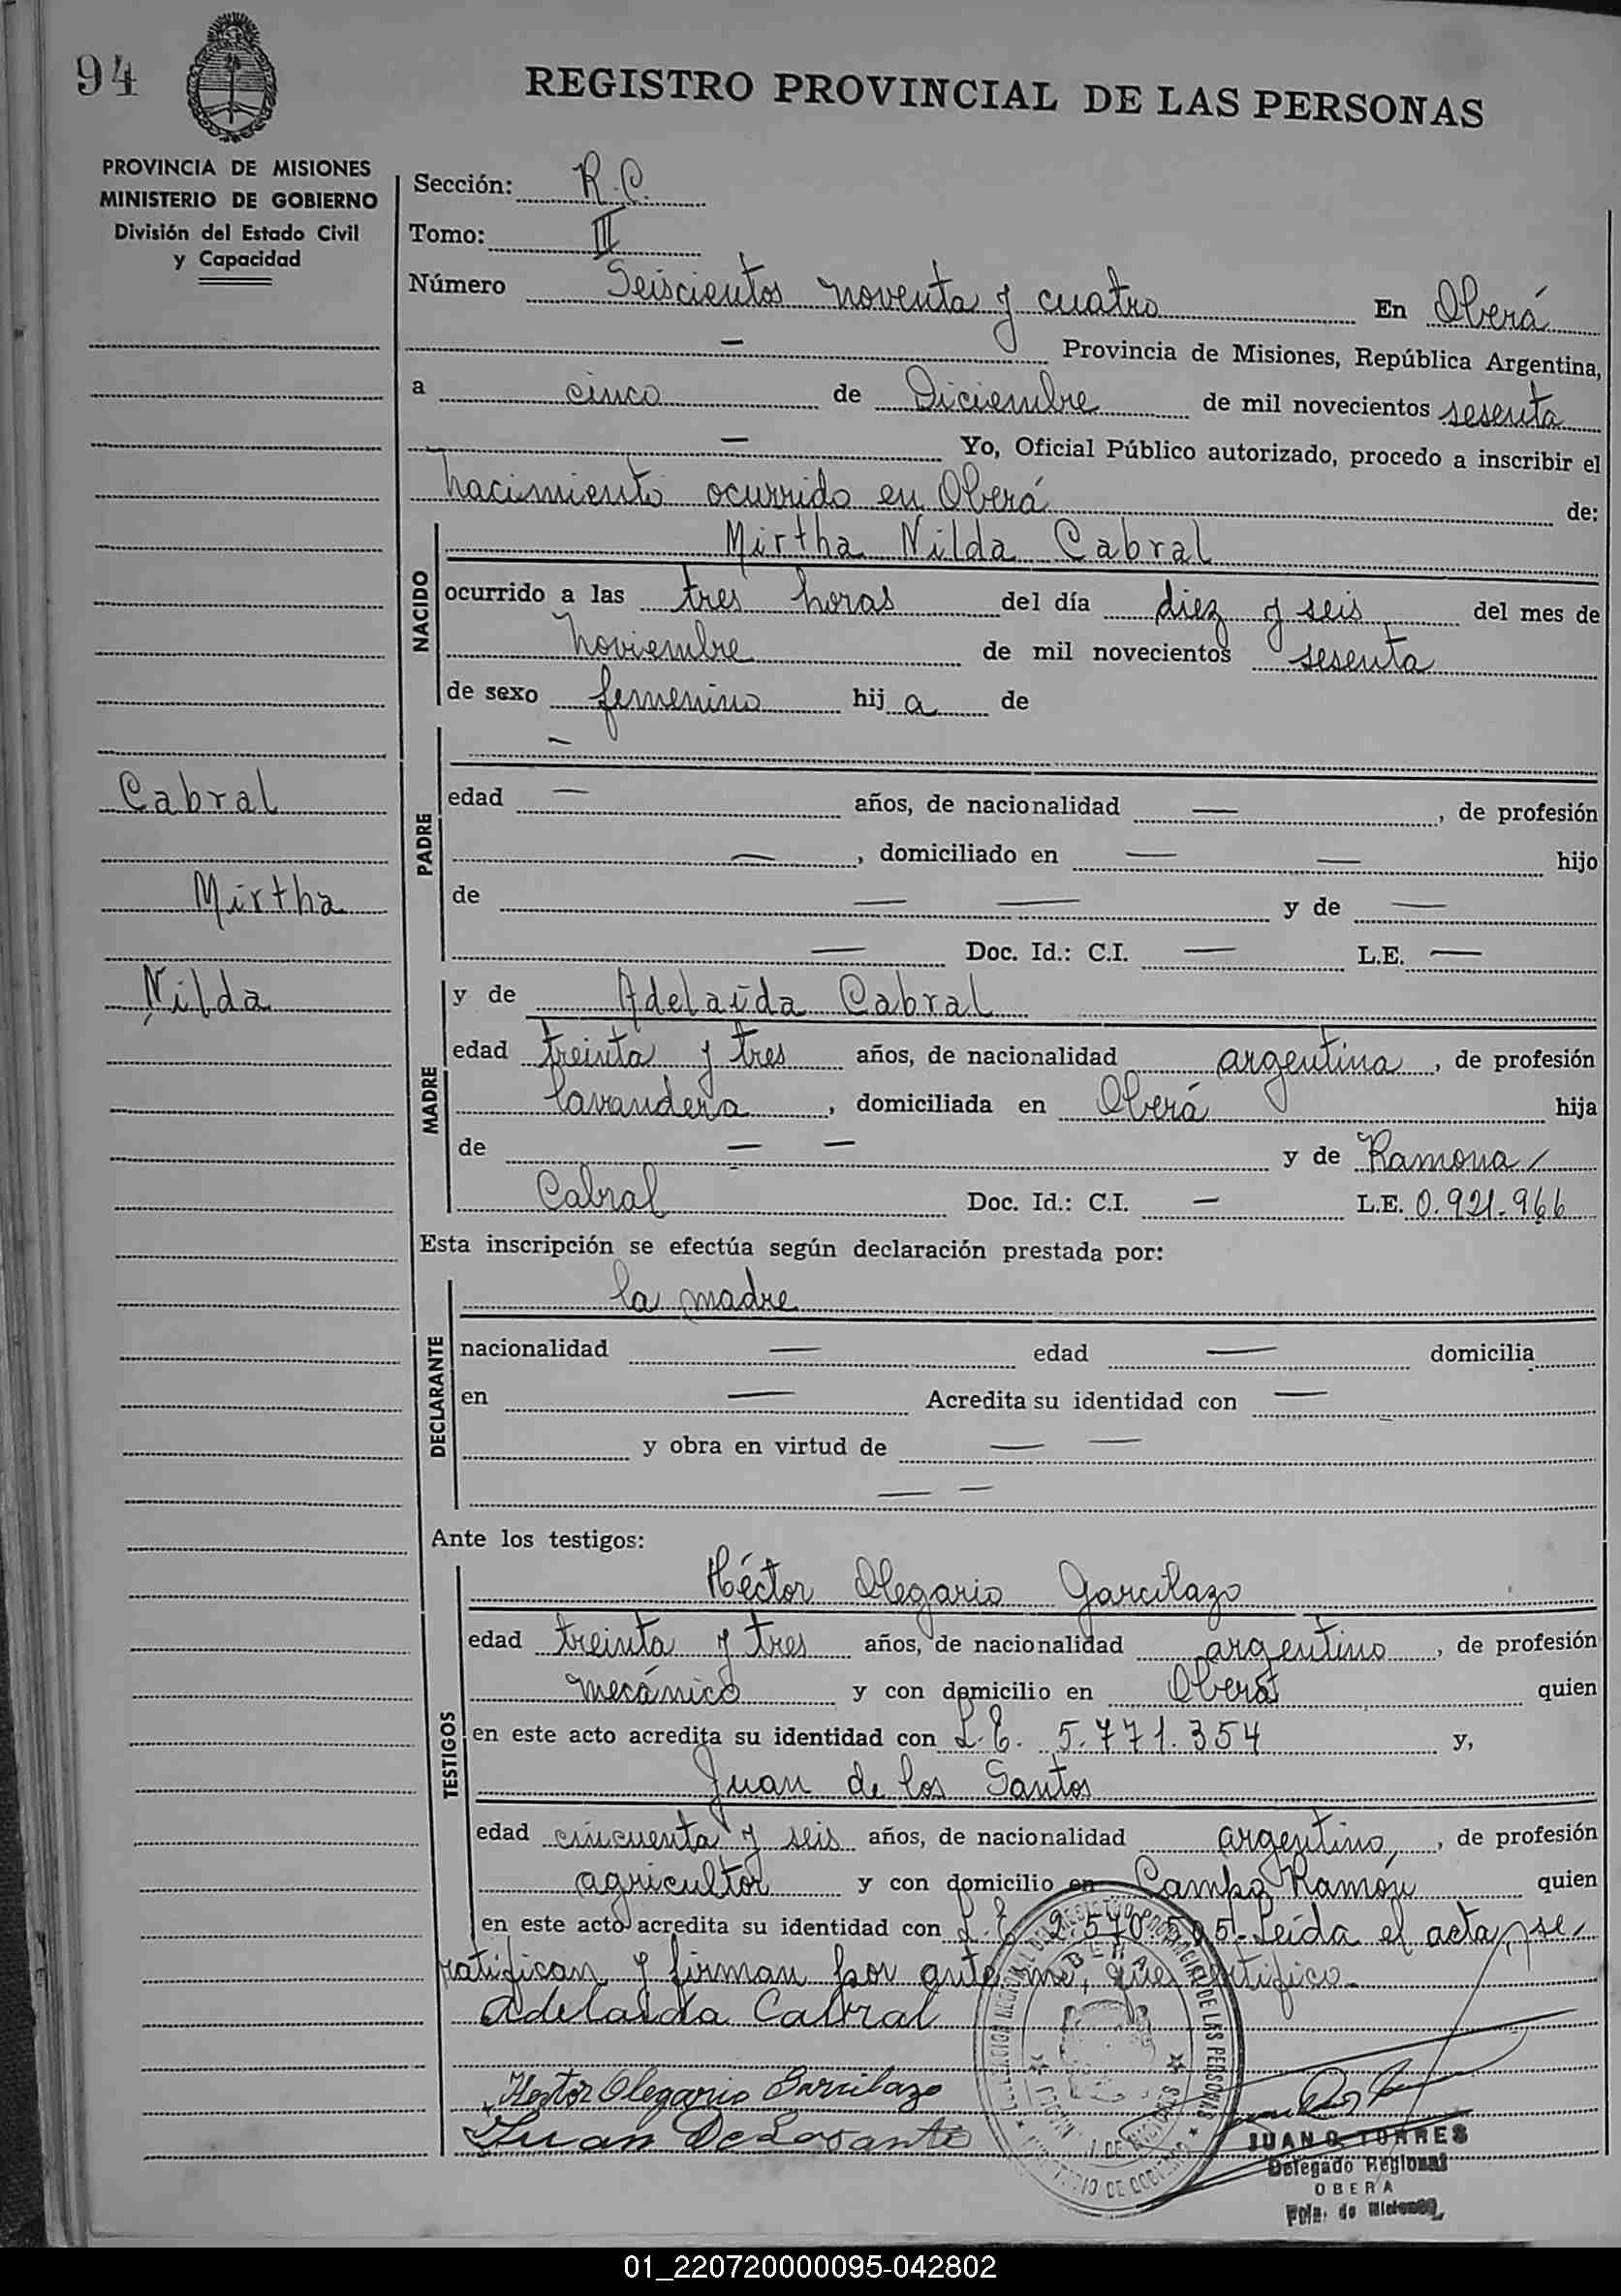 94
REGISTRO PROVINCIAL DE LAS PERSONAS
PROVINCIA DE MISIONES
MINISTERIO DE GOBIERNO
División del Estado Civil
y Capacidad
Sección: R.C.
Tomo: III
Número Seiscientos noventa y cuatro En Oberá
— Provincia de Misiones, República Argentina,
a cinco de Diciembre de mil novecientos sesenta
— Yo, Oficial Público autorizado, procedo a inscribir el
nacimiento ocurrido en Oberá de:
NACIDO
Mirtha Nilda Cabral
ocurrido a las tres horas del día diez y seis del mes de
Noviembre de mil novecientos sesenta
de sexo femenino hij a de
Cabral
Mirtha
Nilda
PADRE
—
edad — años, de nacionalidad —, de profesión
—, domiciliado en — — hijo
de — — y de —
— Doc. Id.: C.I. — L.E. —
MADRE
y de Adelaida Cabral
edad treinta y tres años, de nacionalidad argentina, de profesión
lavandera, domiciliada en Oberá hija
de — — y de Ramona
Cabral Doc. Id.: C.I. — L.E. 0.921.966
Esta inscripción se efectúa según declaración prestada por:
DECLARANTE
la madre
nacionalidad — edad — domicilia
en — Acredita su identidad con —
y obra en virtud de — —
— —
Ante los testigos:
TESTIGOS
Héctor Olegario Garcilazo
edad treinta y tres años, de nacionalidad argentino, de profesión
mecánico y con domicilio en Oberá quien
en este acto acredita su identidad con L.E. 5.771.354 y,
Juan de los Santos
edad cincuenta y seis años, de nacionalidad argentino, de profesión
agricultor y con domicilio en Campo Ramón quien
en este acto acredita su identidad con L.E. 2.570.595.- Leída el acta, se
ratifican y firman por ante mí, que certifico.
Adelaida Cabral
Hector Olegario Garcilazo
Juan De Losante
JUAN TORRES
Delegado Regional
OBERA
Pcia. de Misiones
01_220720000095-042802